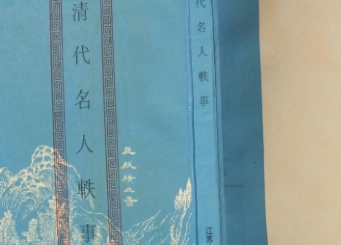 清代名人軼事
代名人軼事
江苏